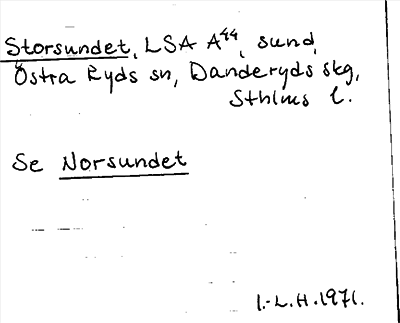 Storsundet, LSA A⁴⁴, sund,
Östra Ryds sn, Danderyds skg,
Sthlms l.
Se Norsundet
I.-L.H. 1971.